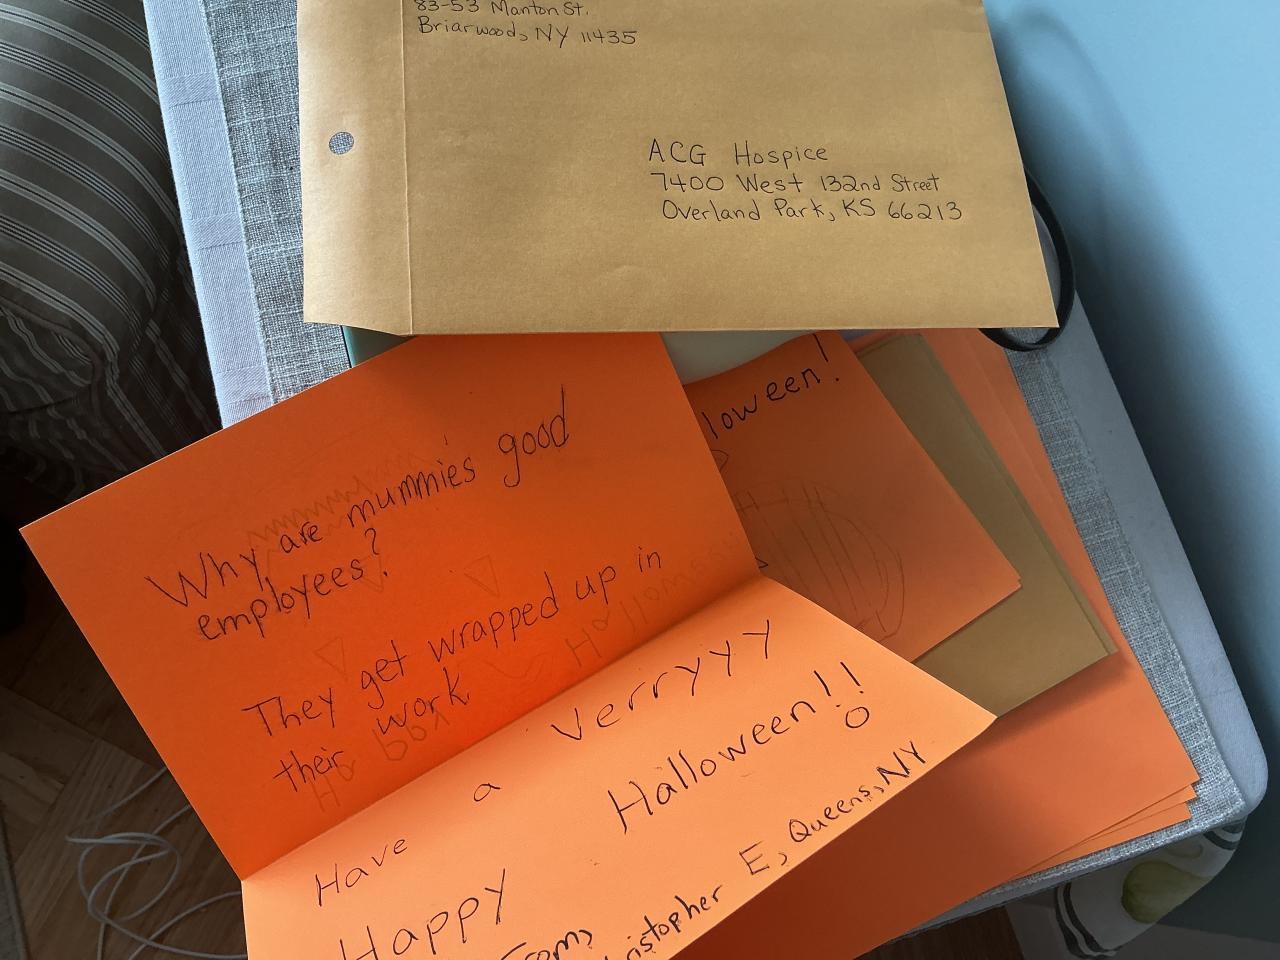 83-53 Manton St.
Briarwood, NY 11435
ACG Hospice
7400 West 132nd Street
Overland Park, KS 66213
lloween!
Why are mummies good
employees?
They get wrapped up in
their work
Have a Verryyy
Happy Halloween!!
From,
ristopher E, Queens, NY